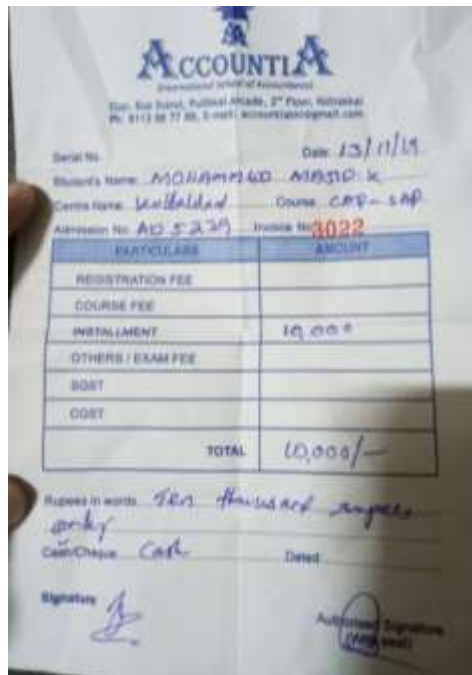 ACCOUNTIA
International School of Accountancy
2nd Floor,
Ph: 8113 98 77 88, E-mail:
Serial No. Date: 13/11/19
Student's Name: MOHAMMED MAJID K
Centre Name: Course CAP - SAP
Admission No. AD 5229 Invoice No 3022
PARTICULARS AMOUNT
REGISTRATION FEE
COURSE FEE
INSTALLMENT 10,000
OTHERS / EXAM FEE
SGST
CGST
TOTAL 10,000/-
Rupees in words Ten thousand rupees
only
Cash/Cheque Cash Dated
Signature Authorised Signature
(With seal)